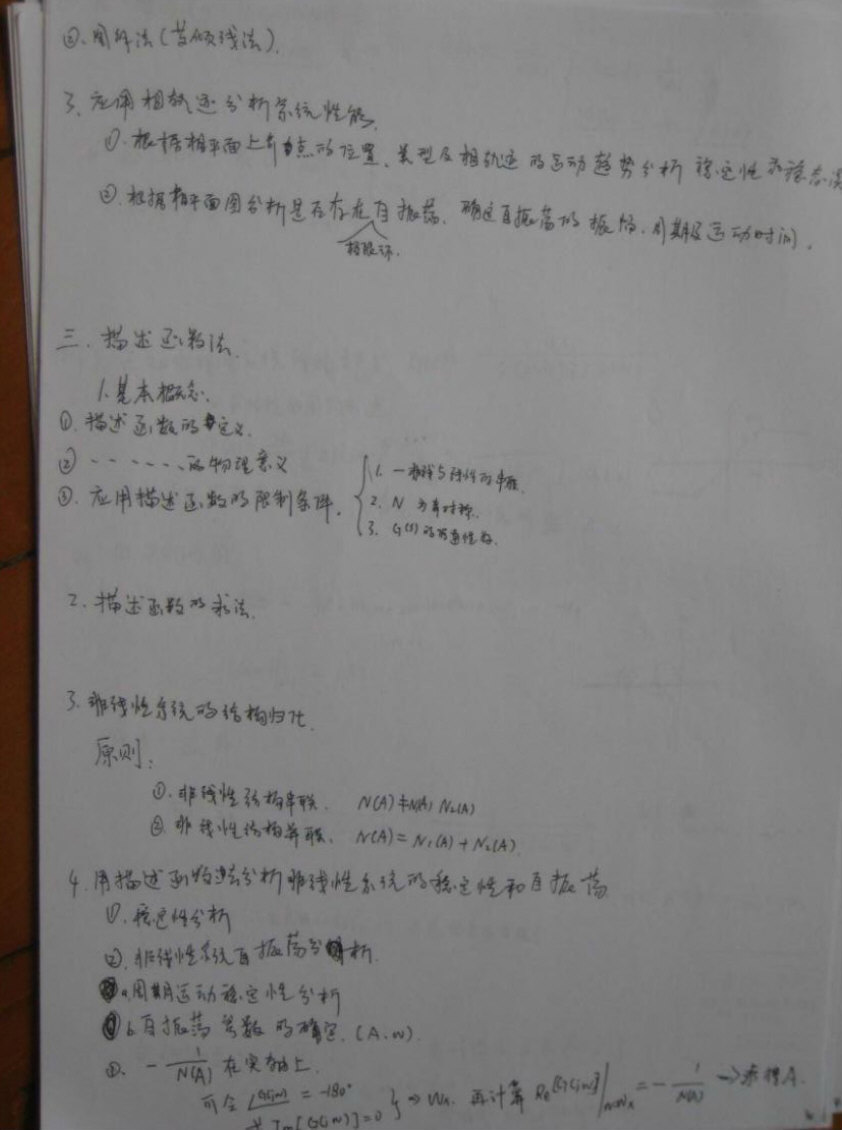 ②、图解法(等倾线法).
3、应用相轨迹分析系统性能.
①. 根据相平面上奇点的位置、类型及相轨迹的运动趋势分析 稳定性和稳态误
②. 根据相平面图分析是否存在自振荡. 确定自振荡的振幅、周期及运动时间.
极限环.
三. 描述函数法.
1. 基本概念.
①. 描述函数的定义.
② ······的物理意义
③. 应用描述函数的限制条件.
1. 一非线与线性的串联.
2. N 为奇对称.
3. G(s)的低通性好.
2. 描述函数的求法.
3. 非线性系统的结构归化.
原则:
①. 非线性结构串联. N(A)≠N₁(A) N₂(A)
②. 非线性结构并联. N(A)=N₁(A)+N₂(A)
4. 用描述函数法分析非线性系统的稳定性和自振荡
①. 稳定性分析
②. 非线性系统自振荡分析.
a. 周期运动稳定性分析
b. 自振荡参数的确定. (A.w).
③. -1/N(A) 在实轴上.
可令 ∠G(jw) = -180°
或 Im[G(jw)]=0 } → Wx. 再计算 Re[G(jw)]|w=wx = -1/N(A) → 求得A.